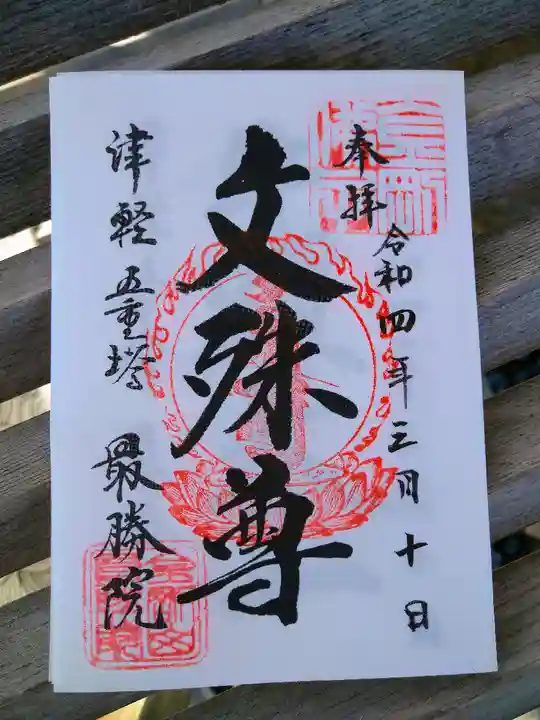 奉拝
令和四年三月十日
文殊尊
津軽 五重塔 最勝院